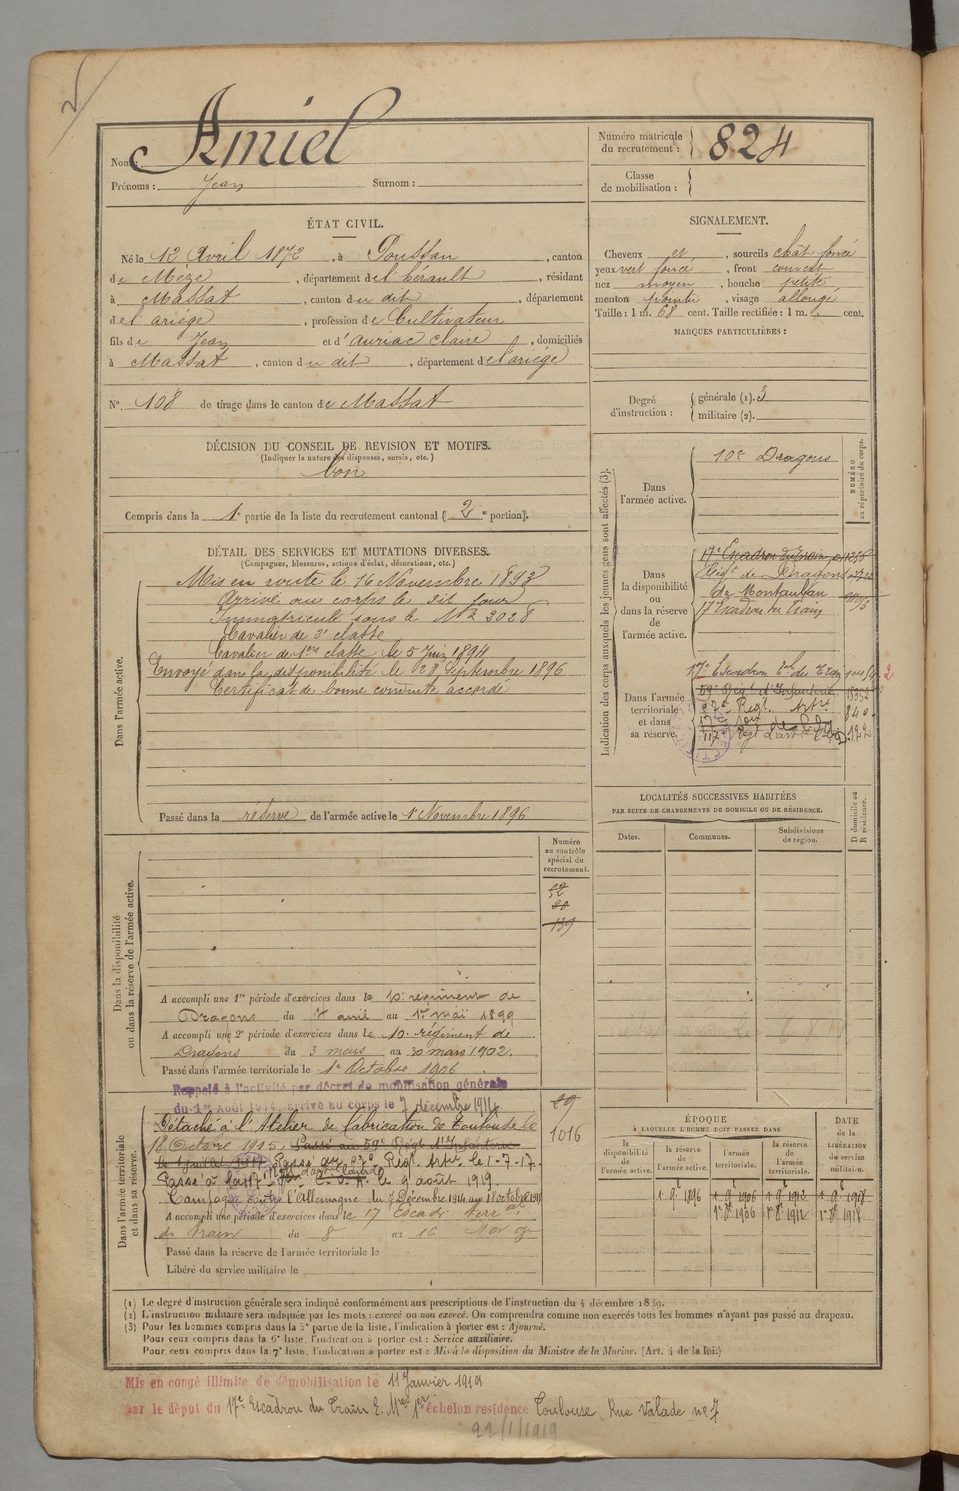 Nom : Amiel
Prénoms : Jean Surnom :
Numéro matricule du recrutement : 824
Classe de mobilisation :
ÉTAT CIVIL.
Né le 12 Avril 1872, à Poussan, canton
de Mèze, département de l'hérault, résidant
à Massat, canton du dit, département
de l'ariège, profession de Cultivateur
fils de Jean et d'Auriac Claire, domiciliés
à Massat, canton du dit, département de l'ariège
N° 108 de tirage dans le canton de Massat
SIGNALEMENT.
Cheveux et, sourcils chât foncé
yeux vert foncé, front couvert
nez moyen, bouche petite
menton pointu, visage allongé
Taille : 1 m. 68 cent. Taille rectifiée : 1 m. cent.
MARQUES PARTICULIÈRES :
Degré d'instruction : générale (1). 3
militaire (2).
DÉCISION DU CONSEIL DE REVISION ET MOTIFS.
(Indiquer la nature des dispenses, sursis, etc.)
bon
Compris dans la 1e partie de la liste du recrutement cantonal (2e portion).
DÉTAIL DES SERVICES ET MUTATIONS DIVERSES.
(Campagnes, blessures, actions d'éclat, décorations, etc.)
Dans l'armée active.
Mis en route le 16 Novembre 1893
Arrivé au corps le dit jour
Immatriculé sous le No 2028
Cavalier de 2e classe
Cavalier de 1ere classe le 5 Juin 1894
Envoyé dans la disponibilité le 28 Septembre 1896
Certificat de bonne conduite accordé
Passé dans la réserve de l'armée active le 1er Novembre 1896
Indication des corps auxquels les jeunes gens sont affectés (3).
NUMÉRO au répertoire du corps.
Dans l'armée active.
10e Dragons
Dans la disponibilité ou dans la réserve de l'armée active.
17e Escadron du train
Régt de Dragons
de Montauban
17 Escadron du Train
Dans l'armée territoriale et dans sa réserve.
17e Escadron du Train
59e Régt d'Infanterie
Régt Artie
117e Régt d'art
LOCALITÉS SUCCESSIVES HABITÉES
PAR SUITE DE CHANGEMENTS DE DOMICILE OU DE RÉSIDENCE.
D domicile ou R résidence.
Dates. Communes. Subdivisions de région.
Dans la disponibilité ou dans la réserve de l'armée active.
Numéro au contrôle spécial du recrutement.
139
A accompli une 1re période d'exercices dans le 10e régiment de
Dragons du 4 avril au 1er mai 1899
A accompli une 2e période d'exercices dans le 10e régiment de
Dragons du 3 mars au 30 mars 1902.
Passé dans l'armée territoriale le 1e Octobre 1906
Rappelé à l'activité par décret de mobilisation générale
du 1er Août 1914, arrivé au corps le 7 décembre 1914
Dans l'armée territoriale et dans sa réserve.
Détaché à l'Atelier de fabrication de Toulouse le
18 Octobre 1915. Passé au 59e Régt d'Infanterie
le 1 juillet 1917. Passé au Régt Artie le 1-7-17.
Passé à la 117 le 9 août 1919.
Campagne contre l'Allemagne du 7 Décembre 1914 au 18 octobre 1915
1016
A accompli une période d'exercices dans le 17 Escadr Terral
du train du 8 au 16 Nov
Passé dans la réserve de l'armée territoriale le
Libéré du service militaire le
ÉPOQUE
À LAQUELLE L'HOMME DOIT PASSER DANS
DATE de la LIBÉRATION du service militaire.
la disponibilité de l'armée active. la réserve de l'armée active. l'armée territoriale. la réserve de l'armée territoriale.
1 9e 1896 1 9e 1906 1 9e 1912 1 9e 1918
1er 8e 1906 1er 8e 1912 1er 8e 1918
(1) Le degré d'instruction générale sera indiqué conformément aux prescriptions de l'instruction du 4 décembre 1889.
(2) L'instruction militaire sera indiquée par les mots : exercé ou non exercé. On comprendra comme non exercés tous les hommes n'ayant pas passé au drapeau.
(3) Pour les hommes compris dans la 5e partie de la liste, l'indication à porter est : Ajourné.
Pour ceux compris dans la 6e liste, l'indication à porter est : Service auxiliaire.
Pour ceux compris dans la 7e liste, l'indication à porter est : Mis à la disposition du Ministre de la Marine. (Art. 4 de la loi.)
Mis en congé illimité de démobilisation le 11 Janvier 1919
par le dépôt du 17e Escadron du Train E. Mes 1er échelon résidence Toulouse Rue Valade no 7
22/1/1919